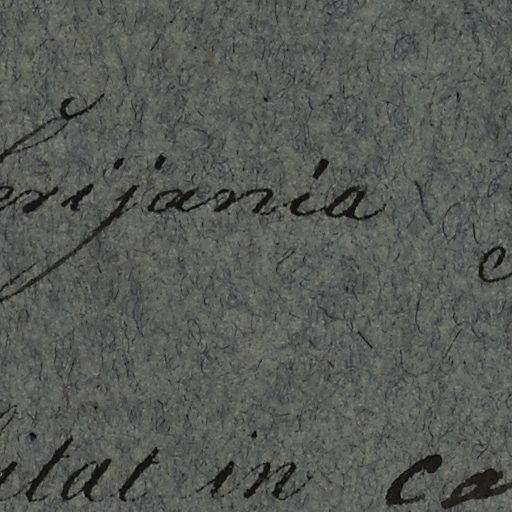 erijania
itat in ca